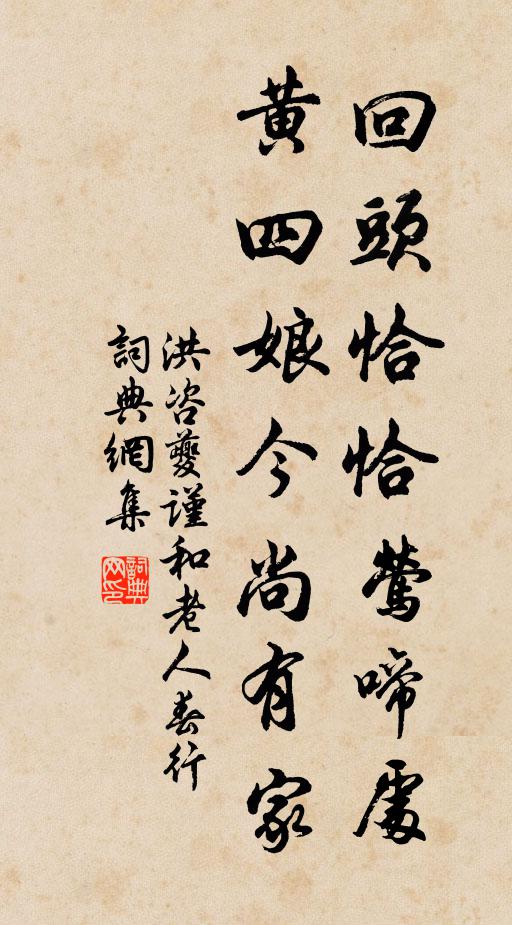 回頭恰恰鶯啼處
黃四娘今尚有家
洪咨夔謹和老人春行
詞典網集
詞典网印